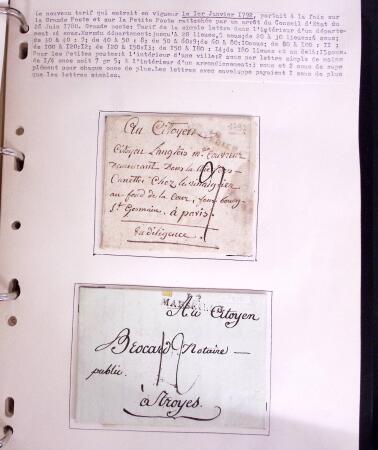 le nouveau tarif qui entrait en vigueur le 1er Janvier 1792, portait à la fois sur
la Grande Poste et sur la Petite Poste rattachée par un arrêt du Conseil d'Etat du
Juin 1780. Grande poste: Tarif de la simple lettre dans l'intérieur d'un départe-
ment 4 sous. Hors du département: jusqu'à 20 lieues, 5 sous; de 20 à 30 lieues: 6 sous;
de 30 à 40 : 7; de 40 à 50 : 8; de 50 à 60: 9; de 60 à 80: 10 sous; de 80 à 100 : 11 ;
de 100 à 120: 12; de 120 à 150: 13; de 150 à 180 : 14; de 180 lieues et au delà: 15 sous.
Pour les Petites postes: à l'intérieur d'une ville: 2 sous par lettre simple de moins
de 1/4 once; à l'intérieur d'un arrondissement: 3 sous et 2 sous de sup
plément pour chaque once de plus. Les lettres avec enveloppe payaient 1 sou de plus
que les lettres simples.
Au Citoyen
Citoyen Langlois
demeurant Dans la
Canettes Chez le
au fond de la Cour, faux bourg
St Germain, à paris.
9
La diligence.
MARSEILLE
Au Citoyen
Brocard Notaire
public.
12
à Troyes.